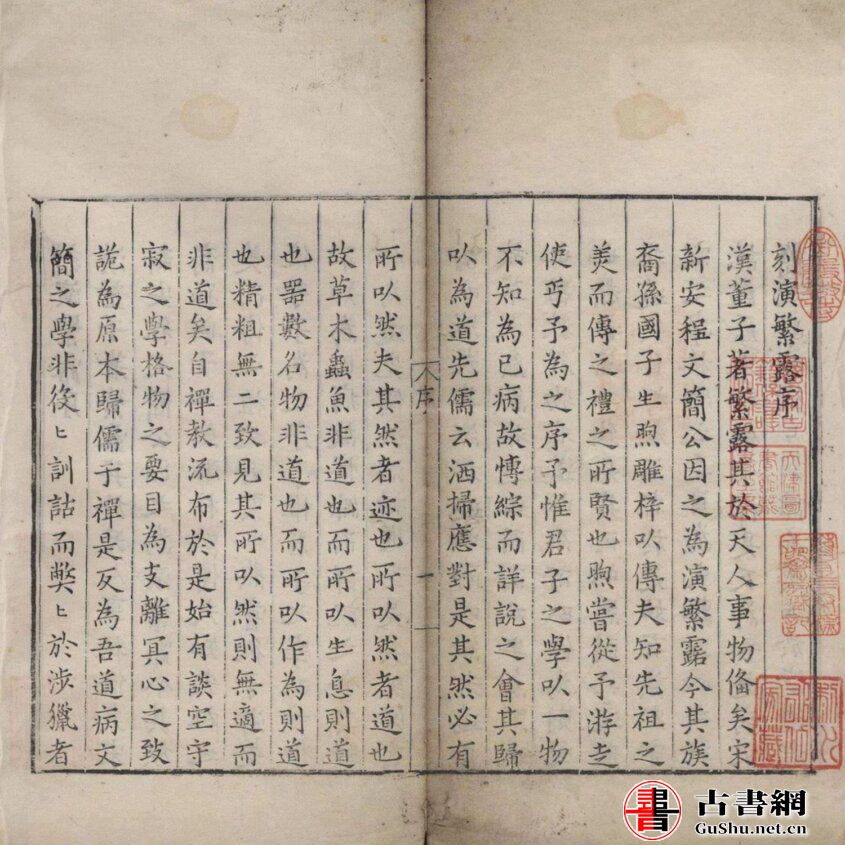 刻演繁露序
漢董子著繁露其於天人事物俻矣宋
新安程文簡公因之為演繁露今其族
裔孫國子生煦雕梓以傳夫知先祖之
美而傳之禮之所賢也煦嘗從予游走
使丐予為之序予惟君子之學以一物
不知為已病故慱綜而詳說之會其歸
以為道先儒云洒掃應對是其然必有
序
一
所以然夫其然者迹也所以然者道也
故草木蟲魚非道也而所以生息則道
也器數名物非道也而所以作為則道
也精粗無二致見其所以然則無適而
非道矣自禪教流布於是始有談空守
寂之學格物之要目為支離冥心之致
詭為原本歸儒于禪是反為吾道病文
簡之學非後〻訓詁而獘〻於涉獵者
古書網
GuShu.net.cn